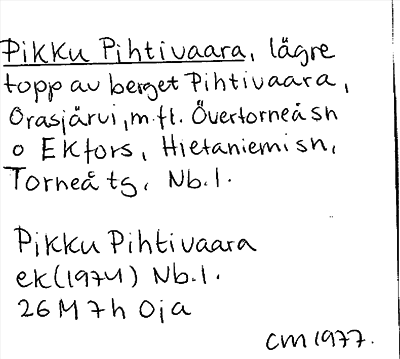 Pikku Pihtivaara, lägre
topp av berget Pihtivaara,
Orasjärvi, m.fl. Övertorneå sn
o Ekfors, Hietaniemi sn,
Torneå tg, Nb.l.
Pikku Pihtivaara
ek (1974) Nb.l.
26 M 7h Oja
CM 1977.